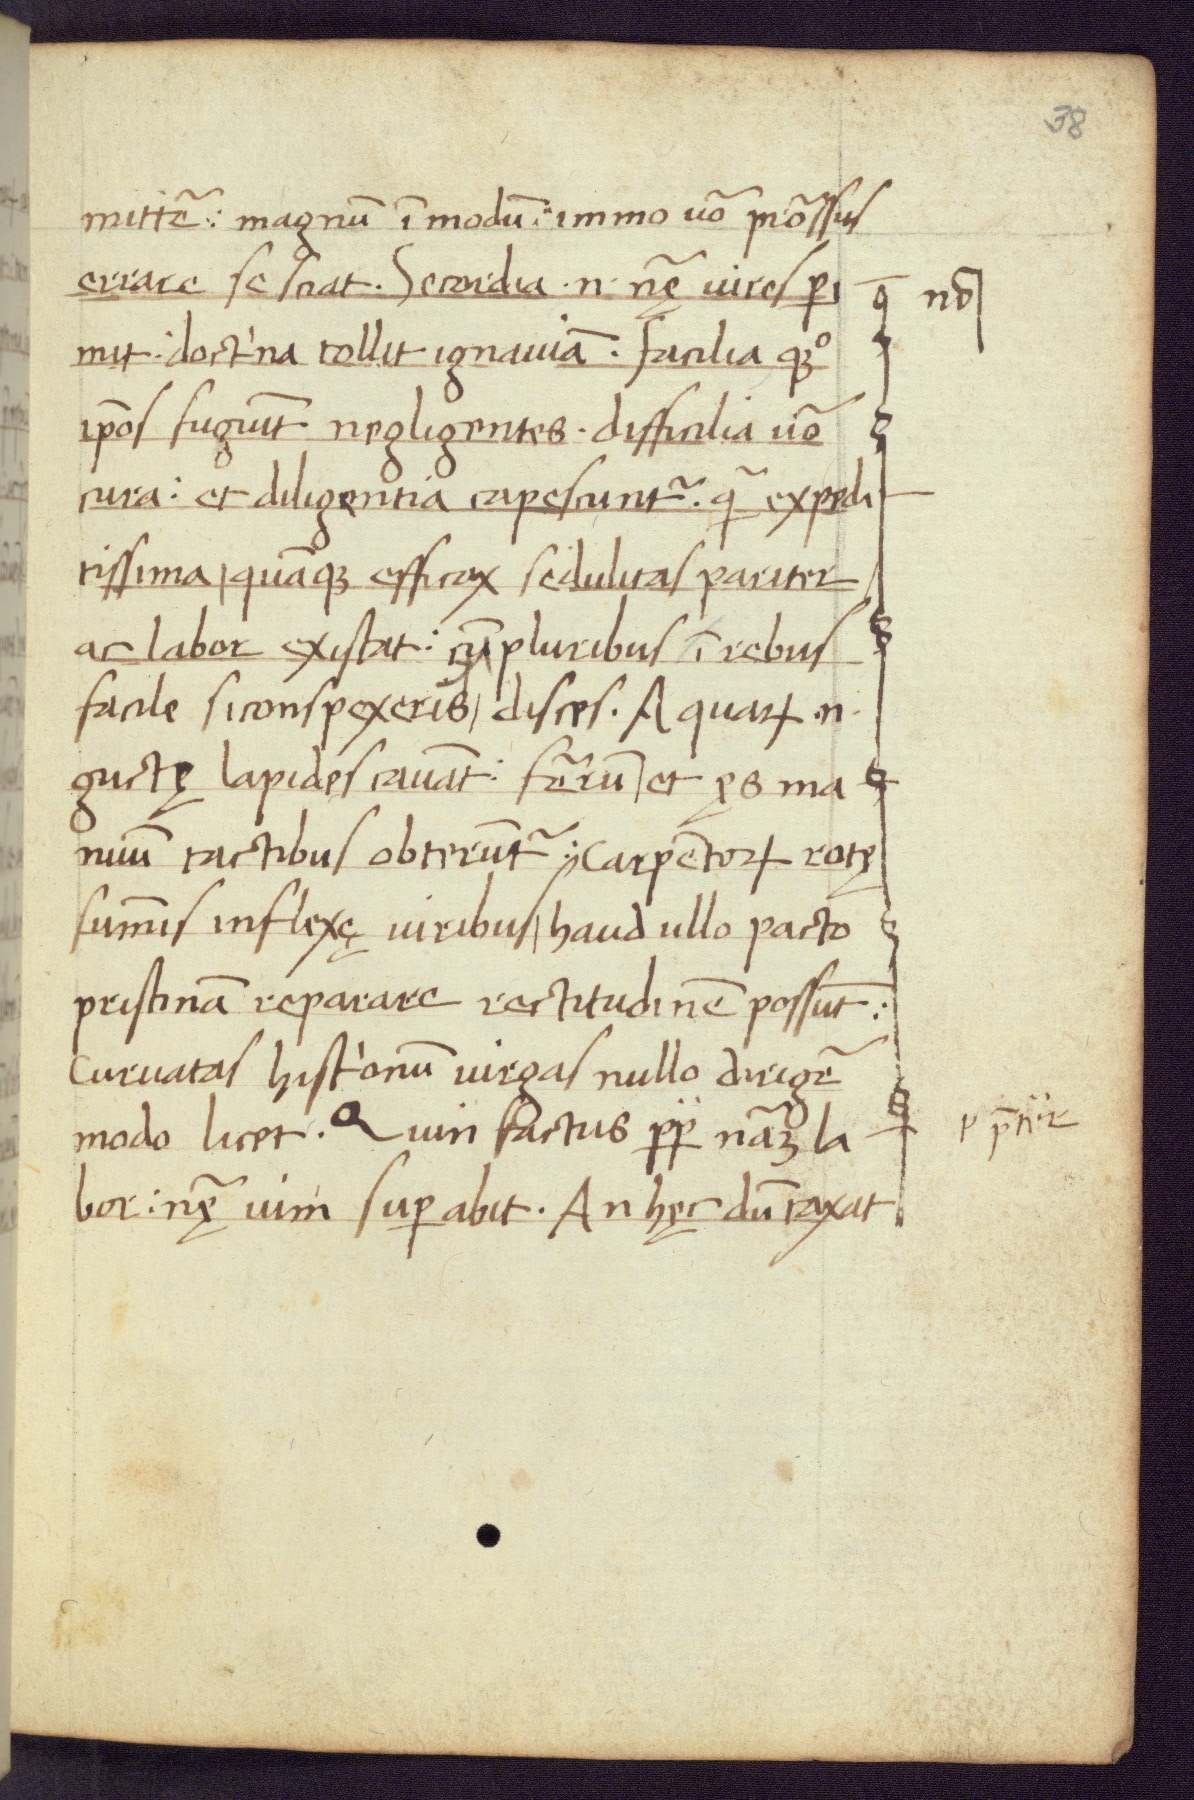 38
mittẽ: magnũ ĩ modũ: immo uõ prõssus
errare se sciat. Secordia .n. nr̃ę uires peri
mit: doctͥna tollit ignauiã. Facilia quoqꝫ
ip̃os fugiũt negligentes. difficilia uõ
cura: et diligentia capescunt̃. q̃ expedi
tissima, quãqꝫ efficax sedulitas pariter
ac labor existat: cũ pluribus ĩ rebus
facile si conspexeris, disces. Aquaꝝ .n.
guctę lapides cauãt: fẽrũ, et ęs ma
nuũ tactibus obterũt̃: Carpẽtoꝝ rotę
sum̃is inflexę uiribus, haud ullo pacto
pristinã reparare rectitudinẽ possũt:
Curuatas histͥonũ uirgas nullo dirigẽ
modo licet. Quin factus pp̃ nãꝫ la
bor: nr̃ę uim superabit. An hęc dũtaxat